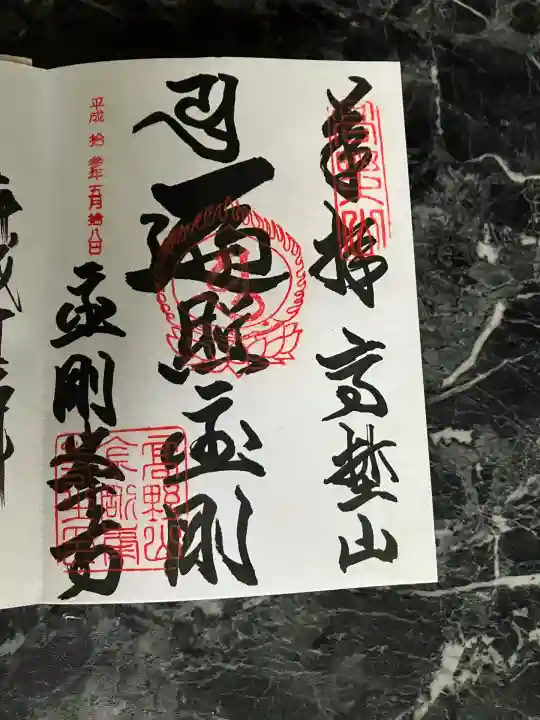 奉拝 高野山
遍照金剛
金剛峯寺
平成拾参年五月拾八日
高野山金剛峯寺